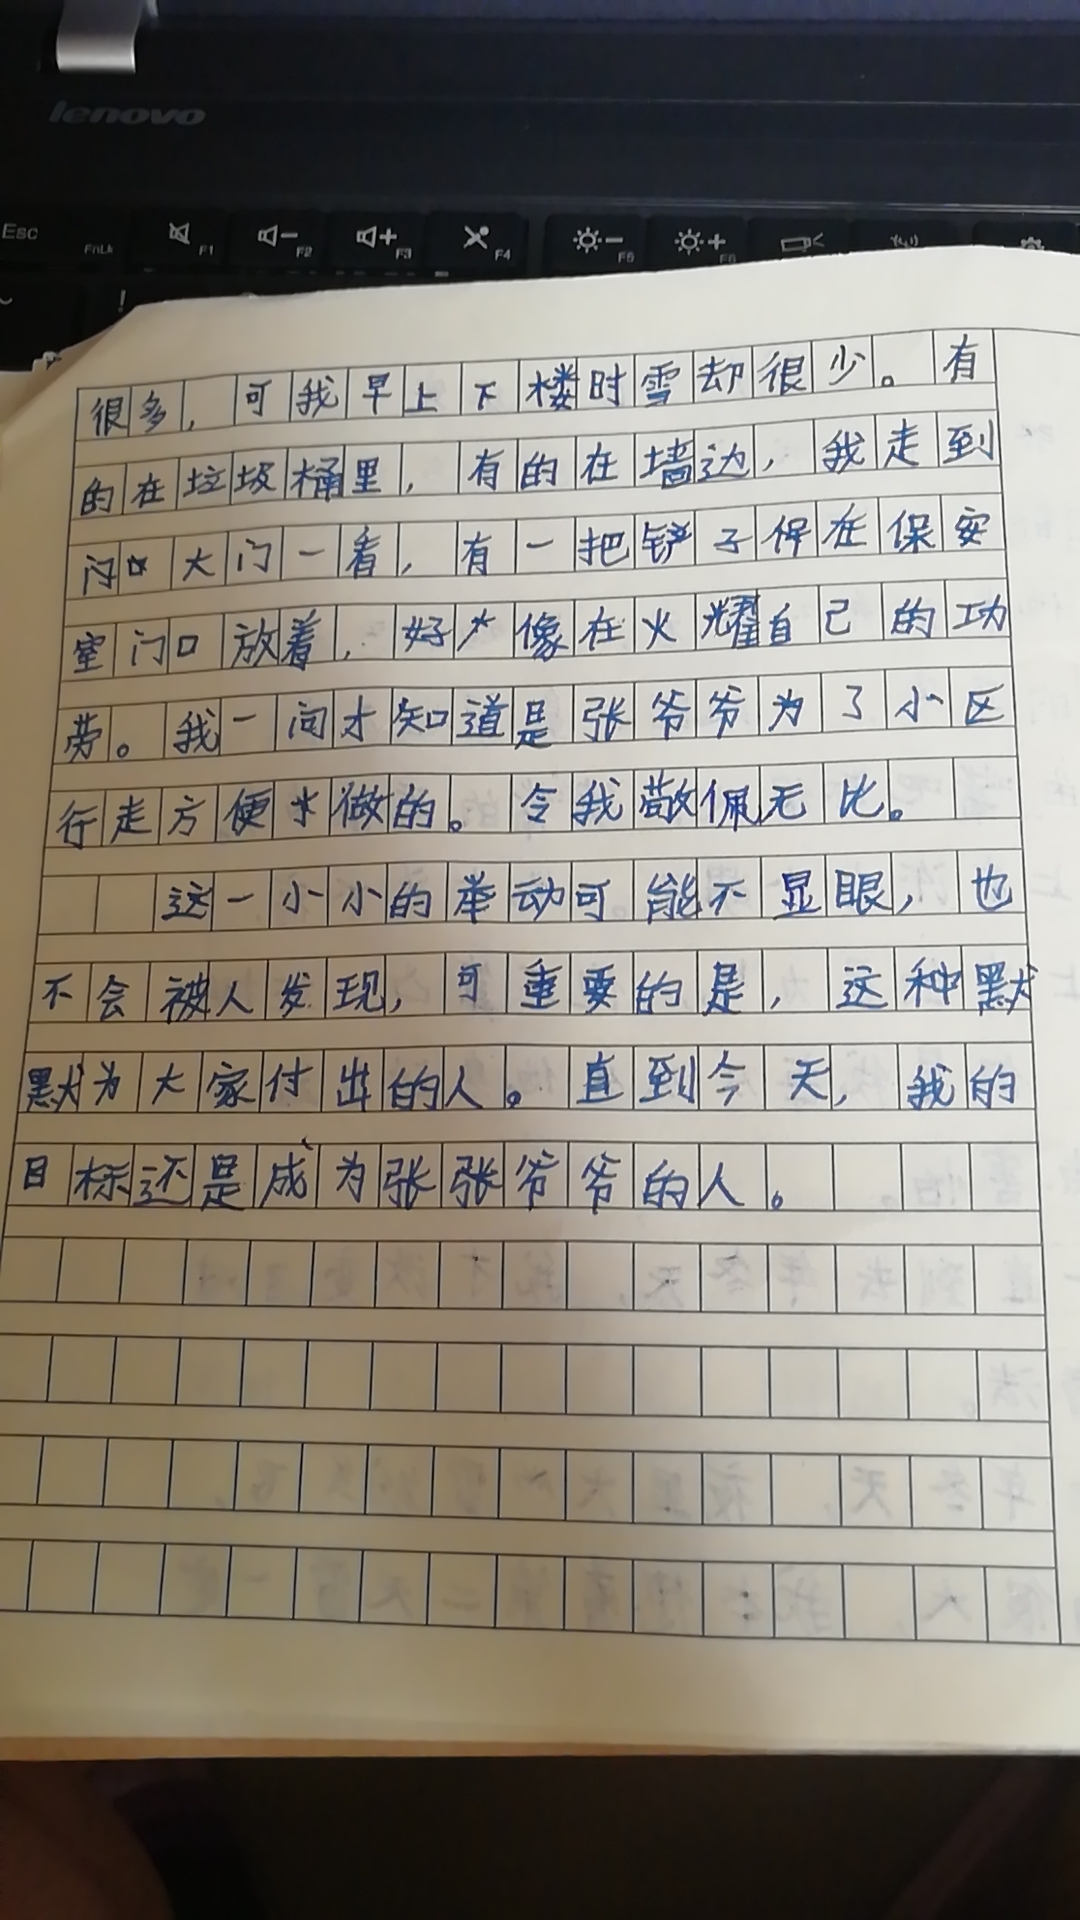 lenovo
Esc FnLk F1 F2 F3 F4 F5 F6
很多,可我早上下楼时雪却很少。有
的在垃圾桶里,有的在墙边,我走到
门口大门一看,有一把铲子保在保安
室门口放着,好像在火耀自己的功
劳。我一问才知道是张爷爷为了小区
行走方便才做的。令我敬佩无比。
这一小小的举动可能不显眼,也
不会被人发现,可重要的是,这种默
默为大家付出的人。直到今天,我的
目标还是成为张张爷爷的人。